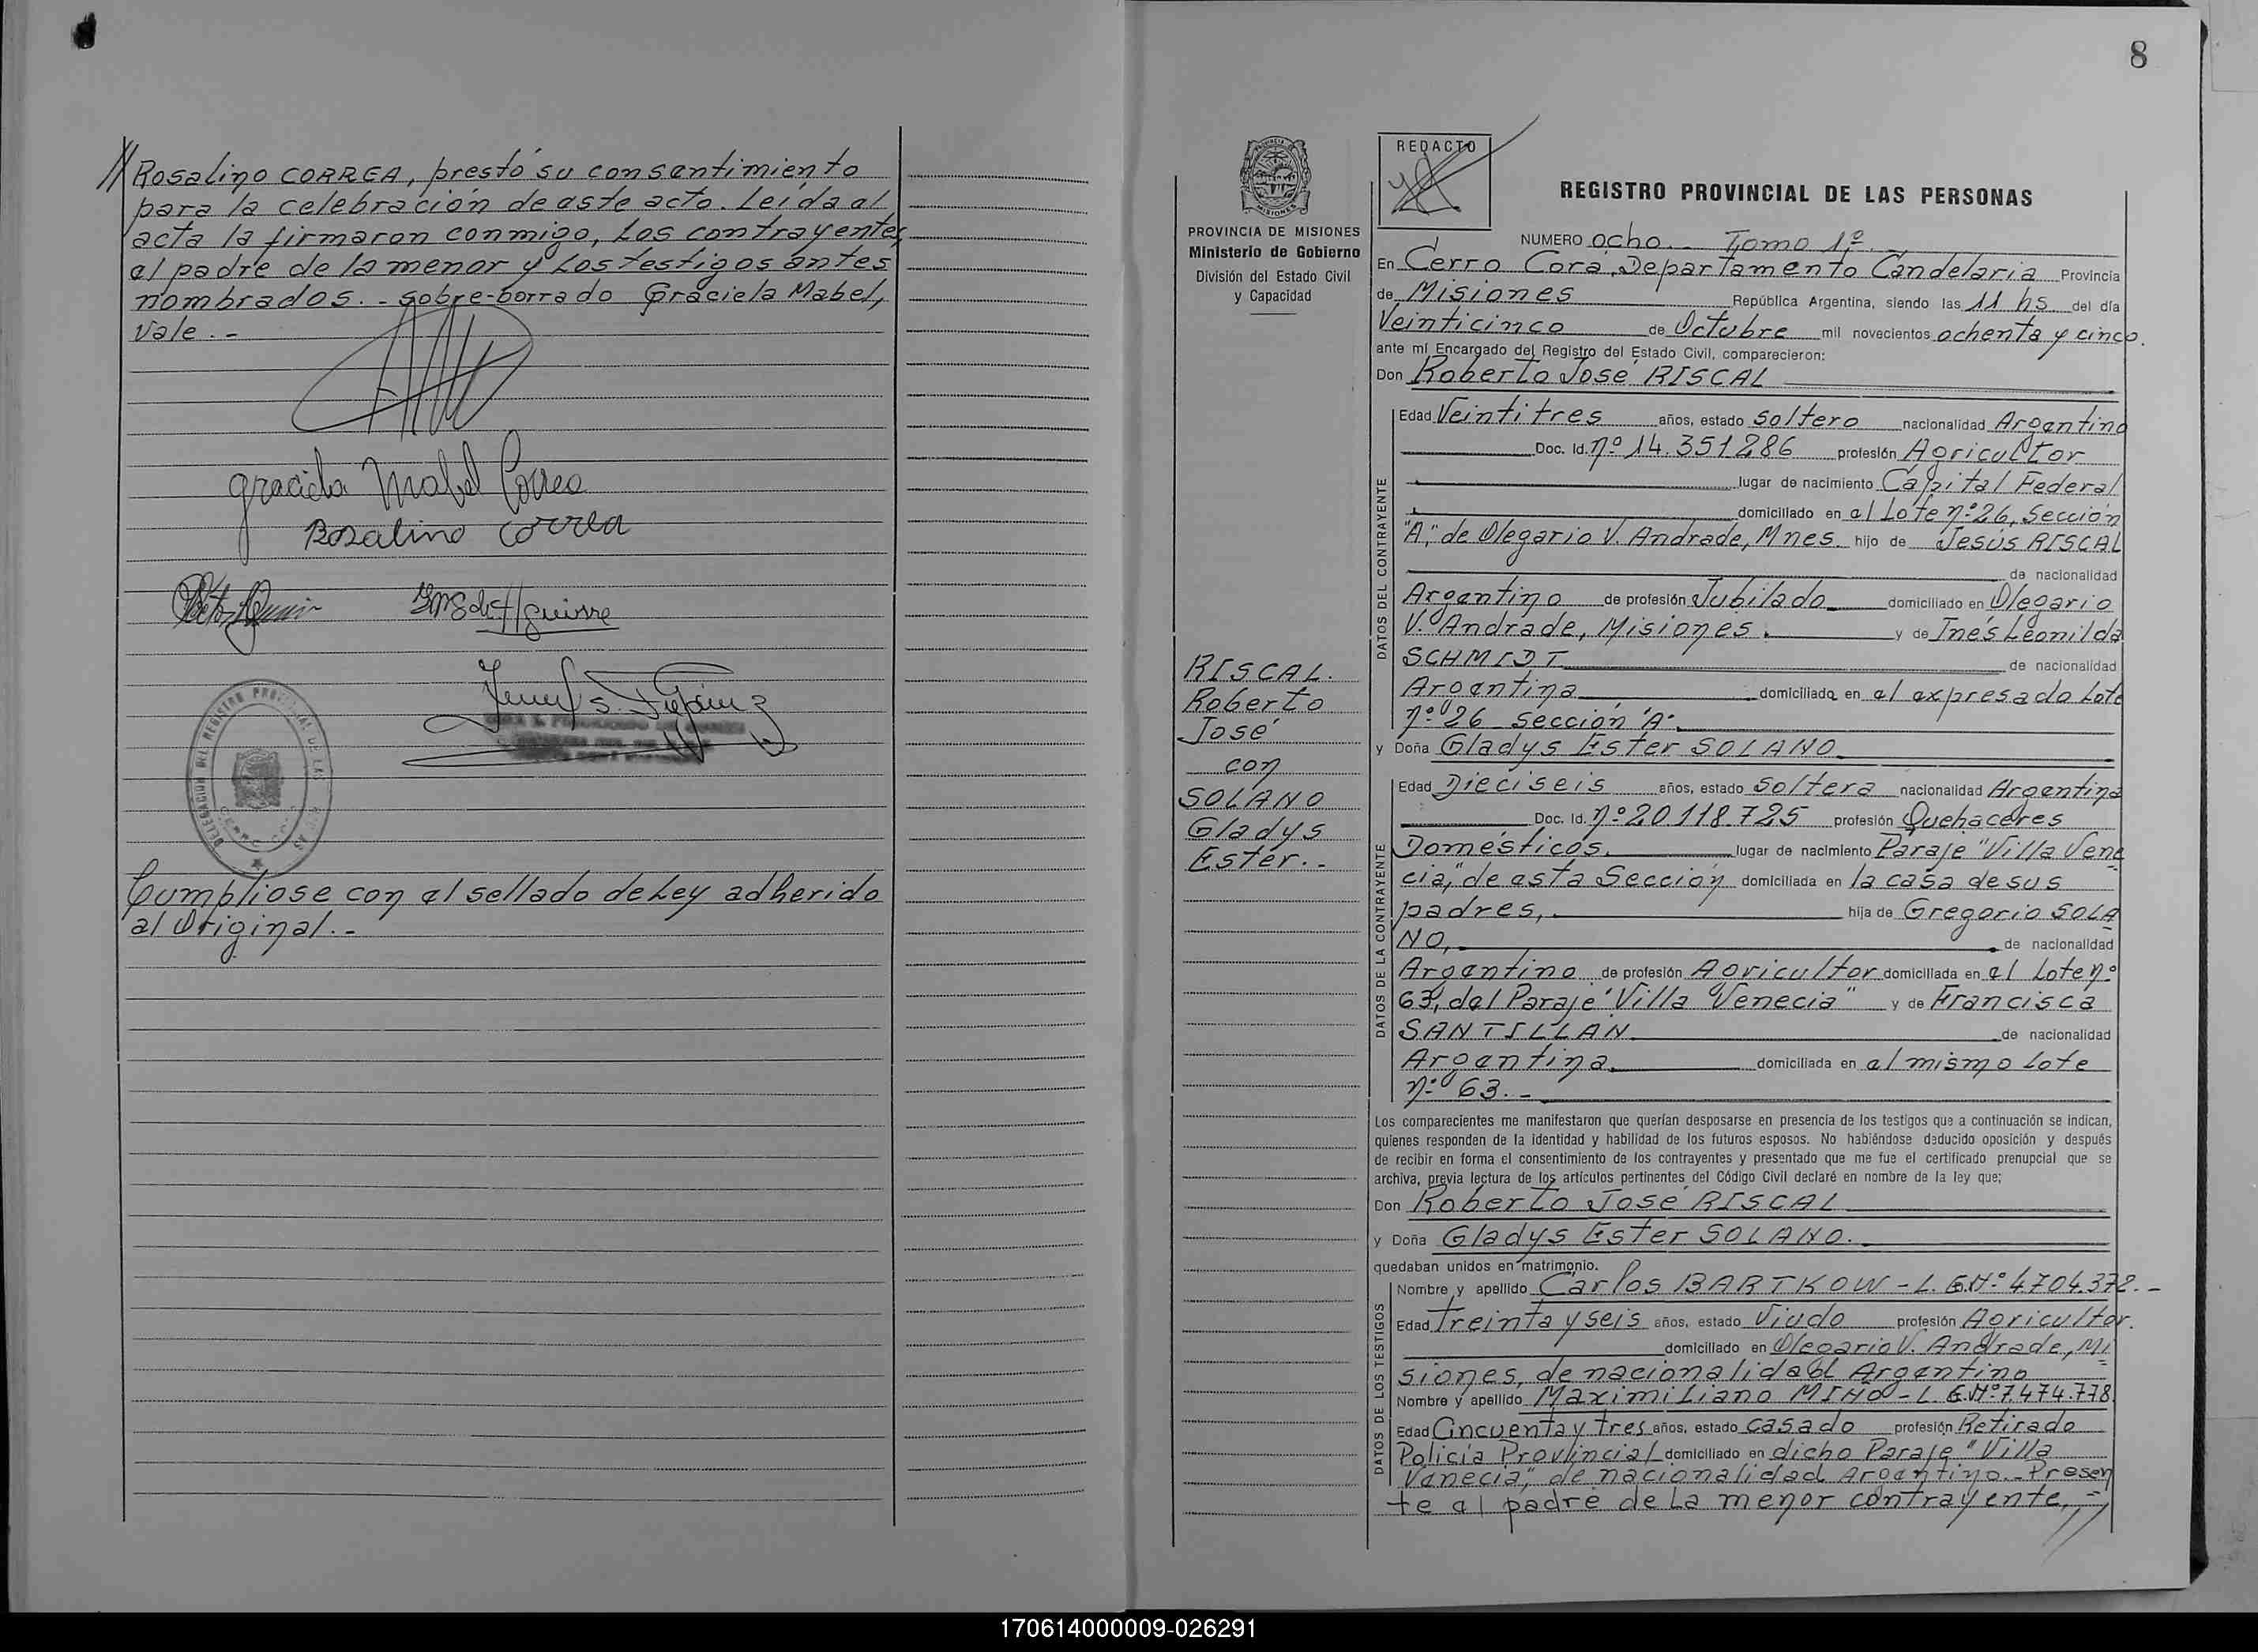 // Rosalino CORREA, prestó su consentimiento
para la celebración de este acto. Leída el
acta la firmaron conmigo, los contrayentes,
el padre de la menor y los testigos antes
nombrados. - sobre-borrado Graciela Mabel,
vale. -
Graciela Mabel Correa
Rosalino Correa
Cumplióse con el sellado de Ley adherido
al Original. -
8
PROVINCIA DE MISIONES
Ministerio de Gobierno
División del Estado Civil
y Capacidad
RISCAL.
Roberto
José
con
SOLANO
Gladys
Ester. -
REDACTO
REGISTRO PROVINCIAL DE LAS PERSONAS
NUMERO ocho. - Tomo 1º. -
En Cerro Corá, Departamento Candelaria Provincia
de Misiones República Argentina, siendo las 11 hs. del día
Veinticinco de Octubre mil novecientos ochenta y cinco.
ante mí Encargado del Registro del Estado Civil, comparecieron:
Don Roberto José RISCAL
DATOS DEL CONTRAYENTE
Edad Veintitres años, estado soltero nacionalidad Argentino
Doc. Id. nº 14.351.286 profesión Agricultor
lugar de nacimiento Capital Federal
domiciliado en el Lote nº 26, Sección
"A", de Olegario V. Andrade, Mnes. hijo de Jesús RISCAL
de nacionalidad
Argentino de profesión Jubilado domiciliado en Olegario
V. Andrade, Misiones. y de Inés Leonilda
SCHMIDT de nacionalidad
Argentina domiciliada en el expresado Lote
nº 26 Sección "A".
y Doña Gladys Ester SOLANO
DATOS DE LA CONTRAYENTE
Edad Dieciseis años, estado soltera nacionalidad Argentina
Doc. Id. nº 20.118.725 profesión Quehaceres
Domésticos. lugar de nacimiento Paraje "Villa Vene
cia," de esta Sección domiciliada en la casa de sus
padres, hija de Gregorio SOLA
NO, de nacionalidad
Argentino de profesión Agricultor domiciliada en el Lote nº
63, del Paraje "Villa Venecia" y de Francisca
SANTILLAN de nacionalidad
Argentina. domiciliada en el mismo Lote
nº 63. -
Los comparecientes me manifestaron que querían desposarse en presencia de los testigos que a continuación se indican,
quienes responden de la identidad y habilidad de los futuros esposos. No habiéndose deducido oposición y después
de recibir en forma el consentimiento de los contrayentes y presentado que me fue el certificado prenupcial que se
archiva, previa lectura de los artículos pertinentes del Código Civil declaré en nombre de la ley que;
Don Roberto José RISCAL
y Doña Gladys Ester SOLANO. -
quedaban unidos en matrimonio.
DATOS DE LOS TESTIGOS
Nombre y apellido Carlos BARTKOW - L.E.Nº 4.704.372. -
Edad Treinta y seis años, estado Viudo profesión Agricultor.
domiciliado en Olegario V. Andrade, Mi
siones, de nacionalidad Argentino
Nombre y apellido Maximiliano MIÑO - L.E.Nº 7.474.778
Edad Cincuenta y tres años, estado casado profesión Retirado
Policía Provincial domiciliado en dicho Paraje "Villa
Venecia", de nacionalidad Argentino. - Presen
te el padre de la menor contrayente, //
170614000009-026291